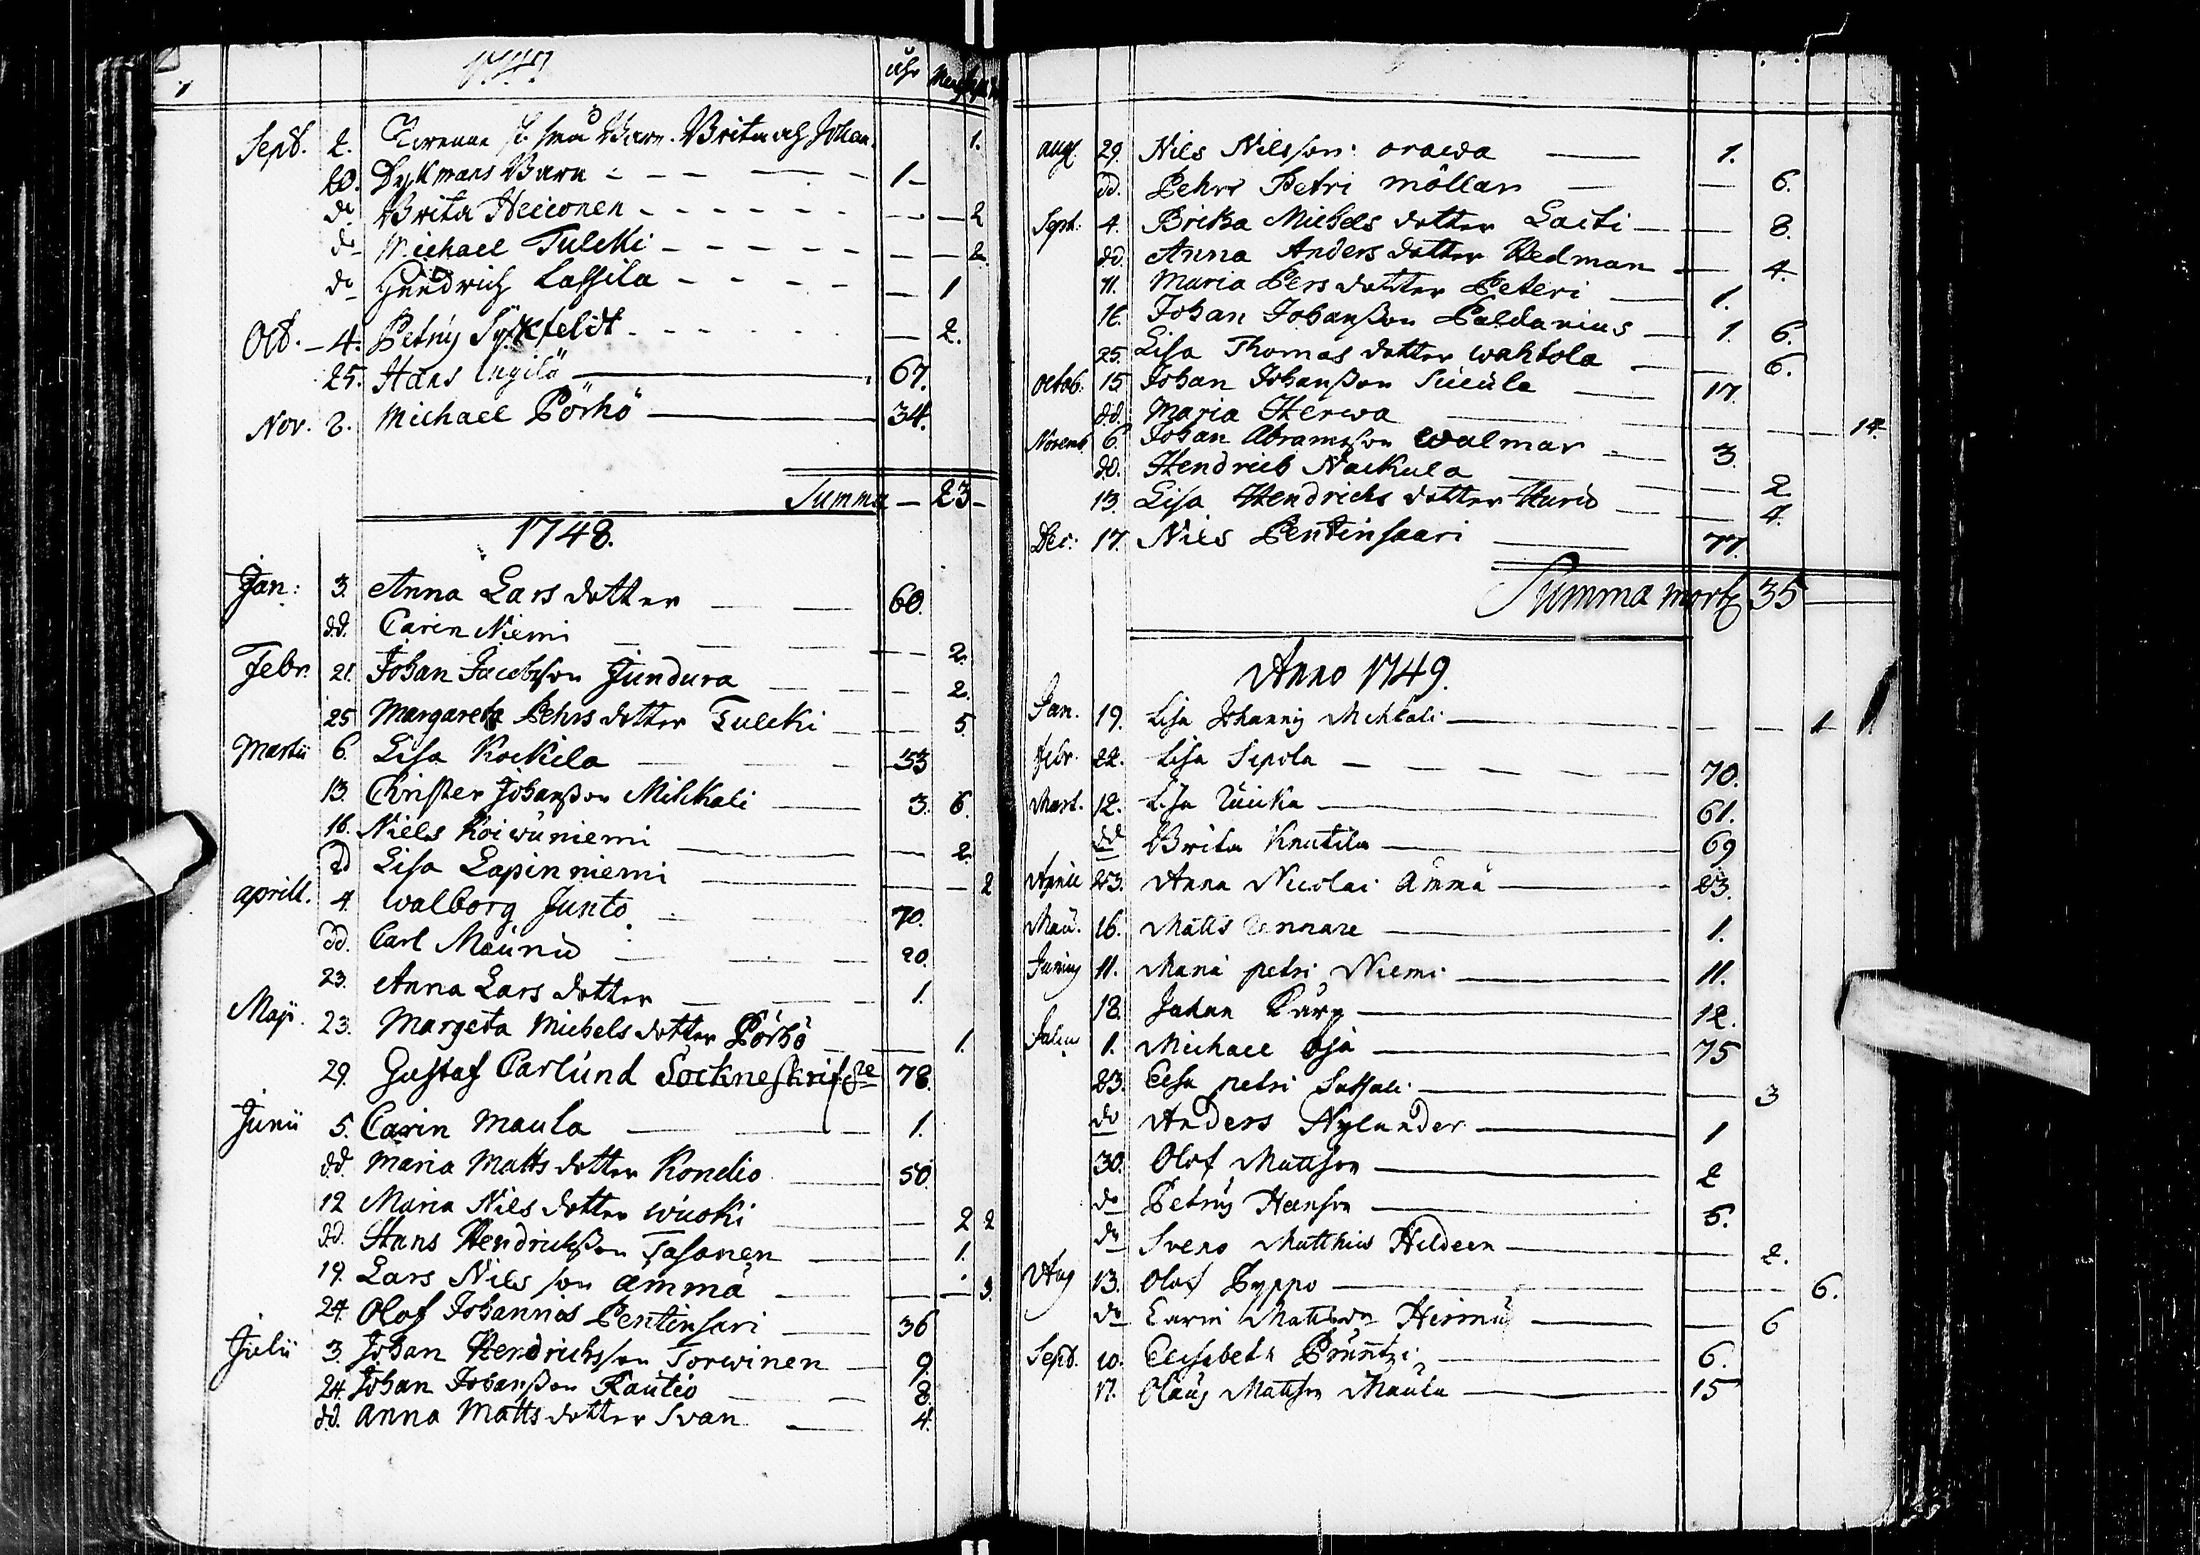 1747
åhr
Sept. 2. Barn. Brita och Johan 1.
20. Dykmans Barn 1
do Brita Heiconen 2
do Michael Tulcki 2.
do Hindrich Lassila 1
Oct. 4. Petrus 2.
25. Hans 67.
Nov. 8. Michael Pörhö 34.
Summa 23
1748.
Jan: 3. Anna Lars dotter 60.
dd. Carin Niemi 2.
Febr. 21. Johan Jacobsson Jundura 2.
25 Margareta Pehrs dotter Tulcki 5.
Martii 6. Lisa Kockila 53
13. Christer Johansson Mihkali 3. 6.
16. Niels Koiwuniemi 2.
dd Lisa Lapinniemi 2
aprill. 4. Walborg Junto 70.
dd. Carl Maunu 20.
23. Anna Lars dotter 1.
Maji. 23. Margeta Michels dotter Pörhö 1.
29. Gustaf Carlund Sockneskrif 78.
Junii 5. Carin Maula 1.
dd Maria Matts dotter Kondio 50.
12 Maria Nils dotter Wuoki 2 2
dd. Hans Hendrichsson Tasanen 1.
19. Lars Nils son Ämmä 3.
24. Olof Johannis Pentinsari 36
Julii 3. Johan Hendrichsson Torwinen 9.
24. Johan Johansson Rautio 8.
dd. Anna Matts dotter Svan 4.
aug. 29. Nils Nilsson orawa 1.
dd. Pehr Petri möllari 6.
Sept: 4. Brita Michels dotter Laiti 8.
dd. Anna Anders dotter Hedman 4.
11. Maria Pers dotter Peteri 1.
16. Johan Johansson Paldanius 1. 6.
25. Lisa Thomas dotter Wahtola 6.
Octob. 15. Johan Johansson 17.
dd. Maria Herwa 14.
Novemb. 6. Johan Abramsson Walmar 3.
dd. Hendrich Nackula 2
13. Lisa Hendrichs dotter Hurio 4.
Dec: 17. Nils Pentinsaari 77.
Summa mort 35
Anno 1749.
Jan. 19. Lisa Johannis Mihkali 1
Febr. 22. Lisa Sipola 70.
Mart. 12. Lisa 61.
dd Brita Knutila 69
Aprill 23. Anna Nicolai Ämmä 23.
Maii. 16. Matts 1.
Junius 11. Maria petri Niemi 11.
18. Johan Karp 12.
Julius 1. Michael Oja 75
23. Elsa petri 3
do Anders Nylander 1
30. Olof Mattson 2
do Petrus Hanson 5.
do Sveno Matthiæ Hildeen 2.
Aug 13. Olof Pyppo 6.
do Carin 6
Sept. 10. Elisabeth 6.
17. Olaus Mattson Maula 15